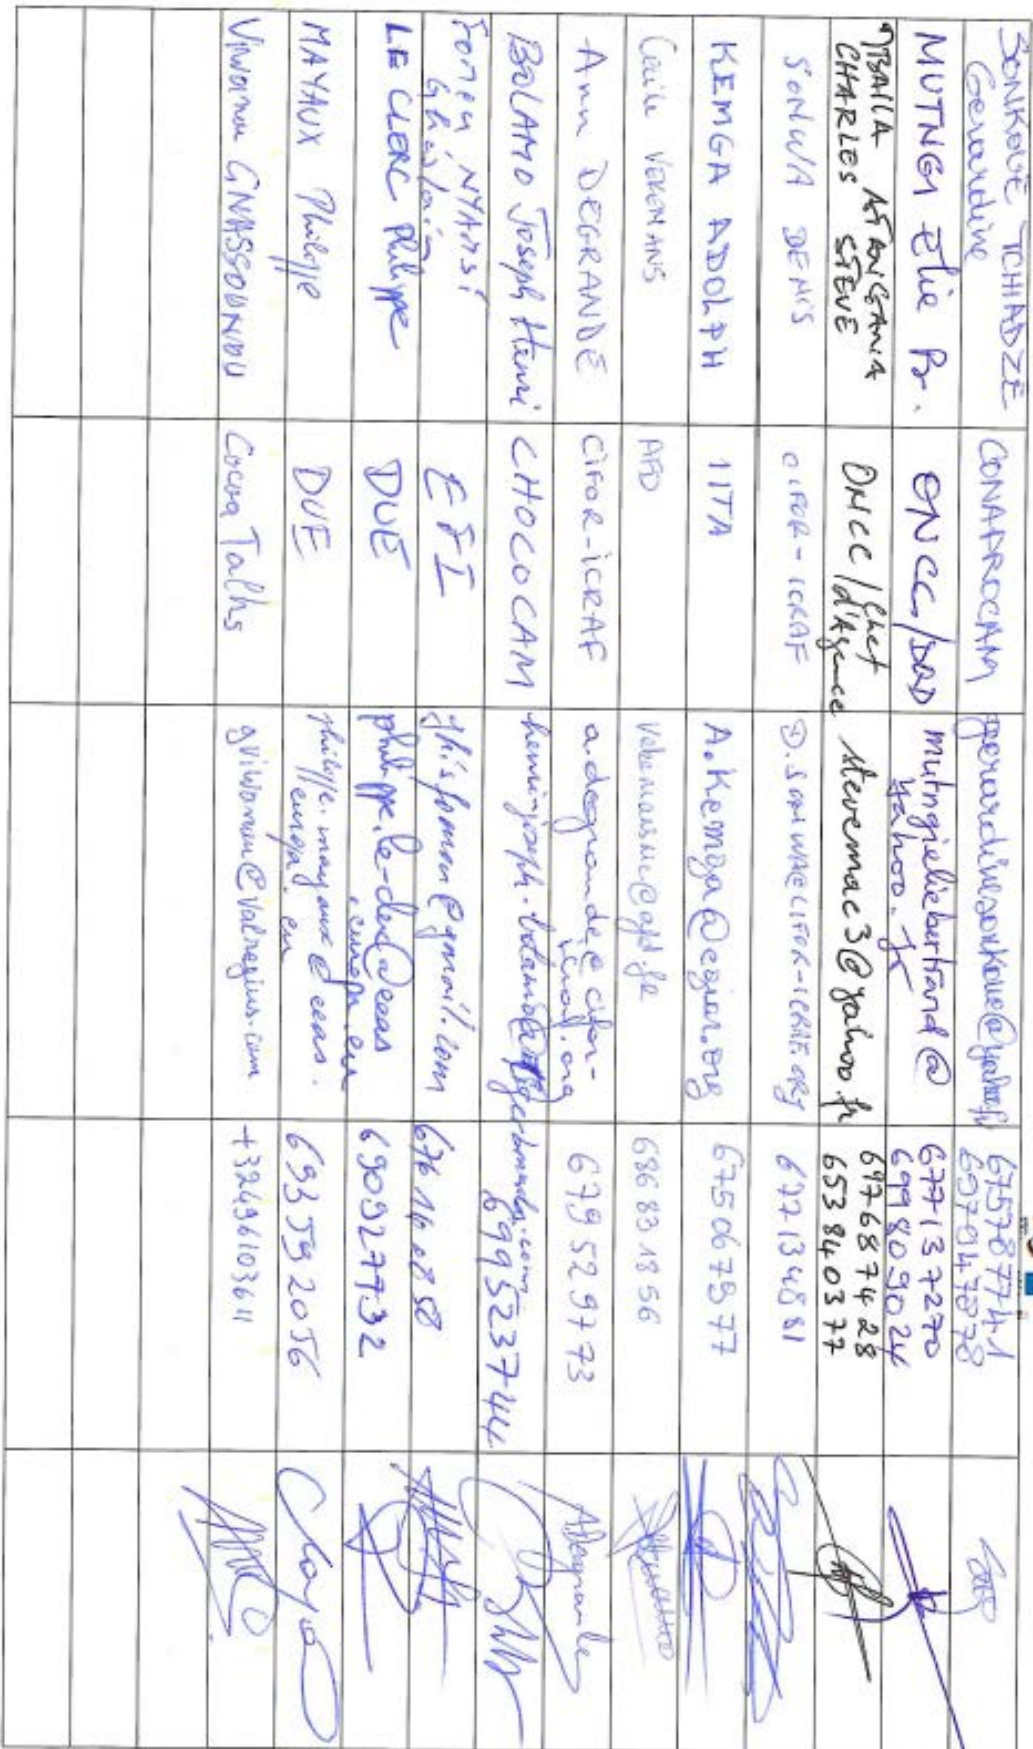 SONKOUE TCHIADZE
Gerardine
CONAPROCAM
gerardinesonkoue@yahoo.fr
675787741
697947878
MUTNGI Elie Br.
ONCC/DAD
mutngieliebertrand@
yahoo.fr
677137270
699809024
MBALLA ATANGANA
CHARLES STEVE
ONCC/Chef
d'Agence
stevemac3@yahoo.fr
697687428
653840377
SONWA DENIS
CIFOR-ICRAF
D.SONWA@CIFOR-ICRAF.ORG
677134881
KEMGA ADOLPH
IITA
A.Kemga@cgiar.org
675067977
Cécile VEKEMANS
AFD
686831856
Ann DEGRANDE
CIFOR-ICRAF
a.degrande@cifor-
icraf.org
679529773
BOLAMO Joseph Henri
CHOCOCAM
699523744
Ghislain
EFI
ghisfomou@gmail.com
676160858
LE CLERC Philippe
DUE
philippe.le-clerc@eeas
.europa.eu
690927732
MAYAUX Philippe
DUE
philippe.mayaux@eeas.
europa.eu
693592056
GNASSOUNOU
Cocoa Talks
+32496103611